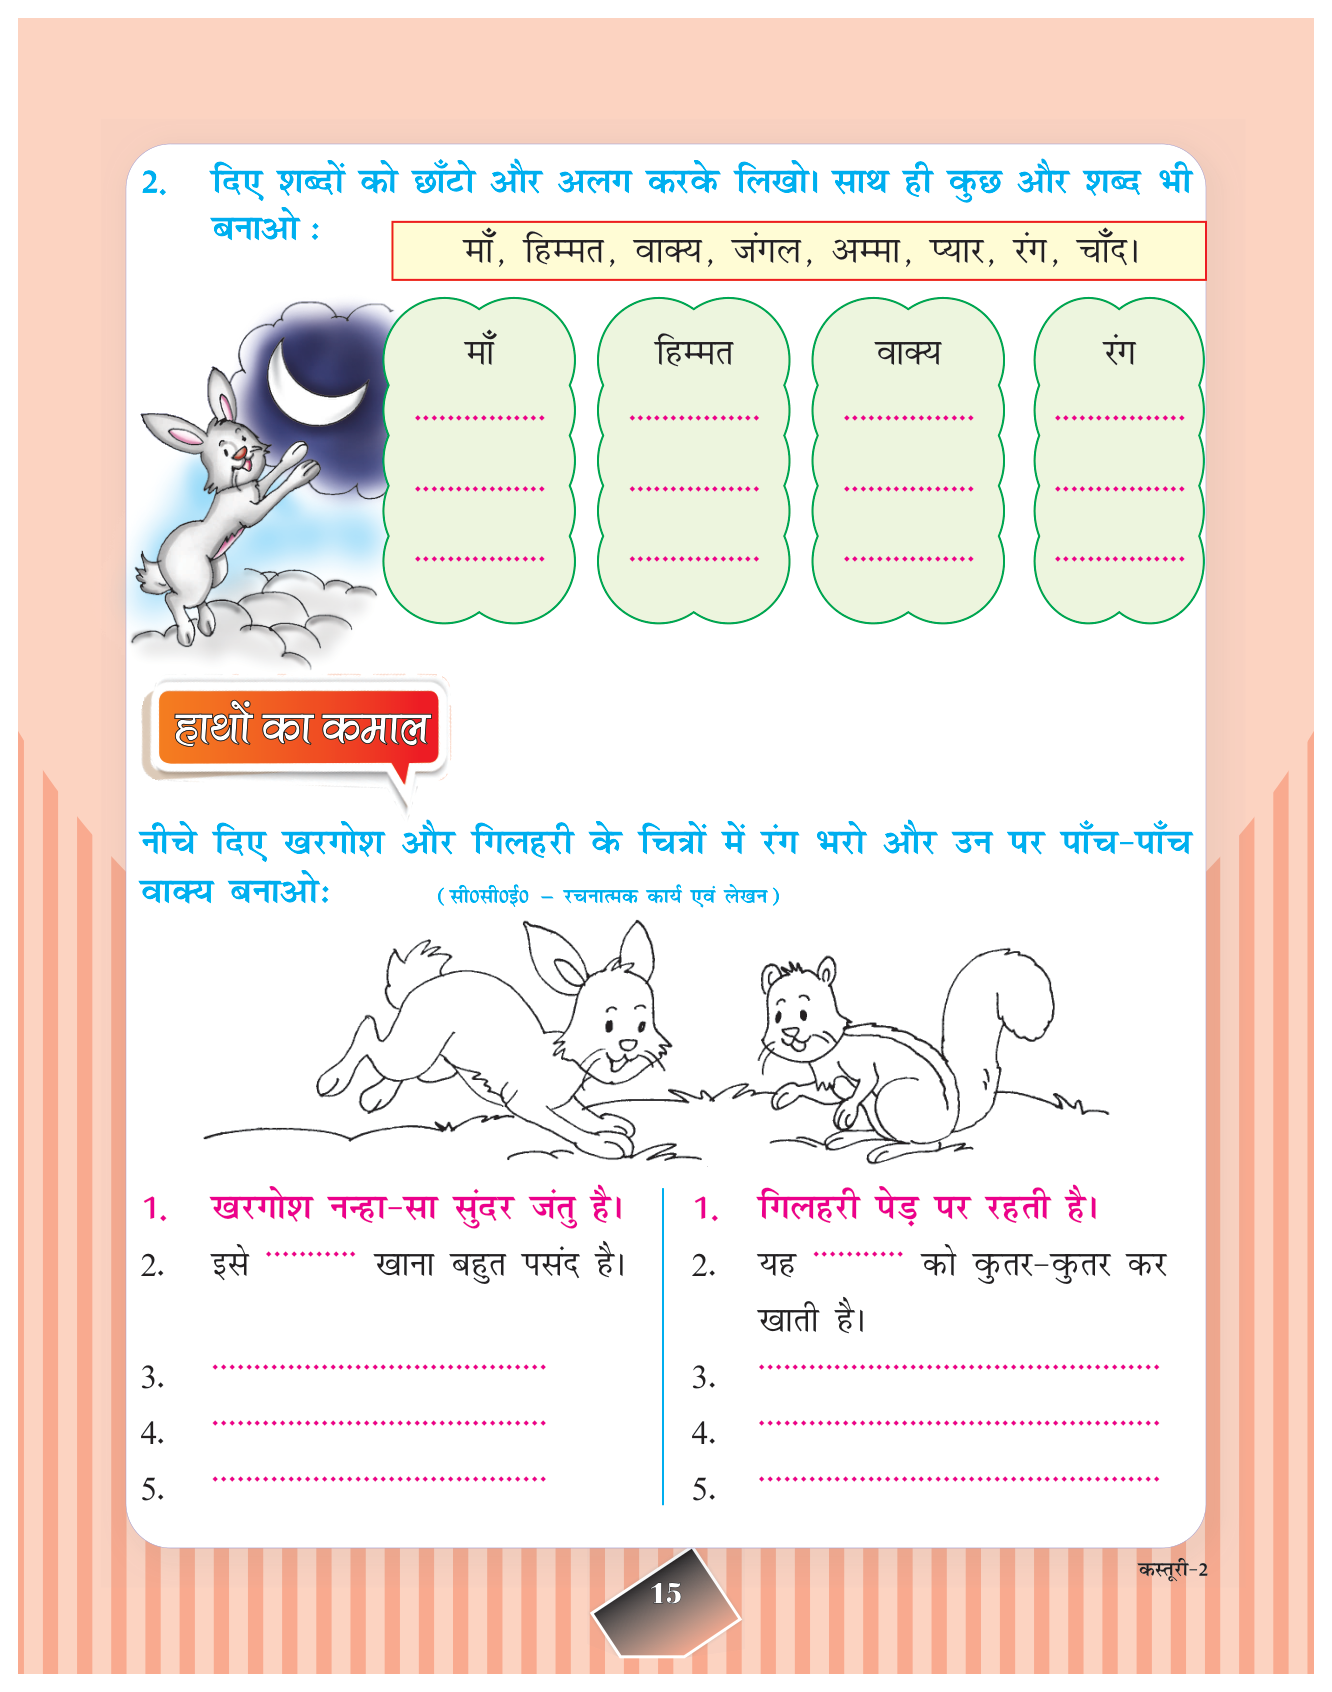 2. दिए शब्दों को छाँटो और अलग करके लिखो। साथ ही कुछ और शब्द भी
बनाओ :
माँ, हिम्मत, वाक्य, जंगल, अम्मा, प्यार, रंग, चाँद।
माँ हिम्मत वाक्य रंग
हाथों का कमाल
नीचे दिए खरगोश और गिलहरी के चित्रों में रंग भरो और उन पर पाँच-पाँच
वाक्य बनाओः (सी0सी0ई0 – रचनात्मक कार्य एवं लेखन)
1. खरगोश नन्हा-सा सुंदर जंतु है।
2. इसे ........... खाना बहुत पसंद है।
3. ........................................
4. ........................................
5. ........................................
1. गिलहरी पेड़ पर रहती है।
2. यह ........... को कुतर-कुतर कर
खाती है।
3. ................................................
4. ................................................
5. ................................................
कस्तूरी-2
15